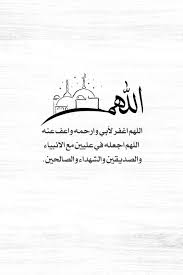 اللهم
اللهم اغفر لأبي وارحمه واعف عنه
اللهم اجعله في عليين مع الانبياء
والصديقين والشهداء والصالحين.